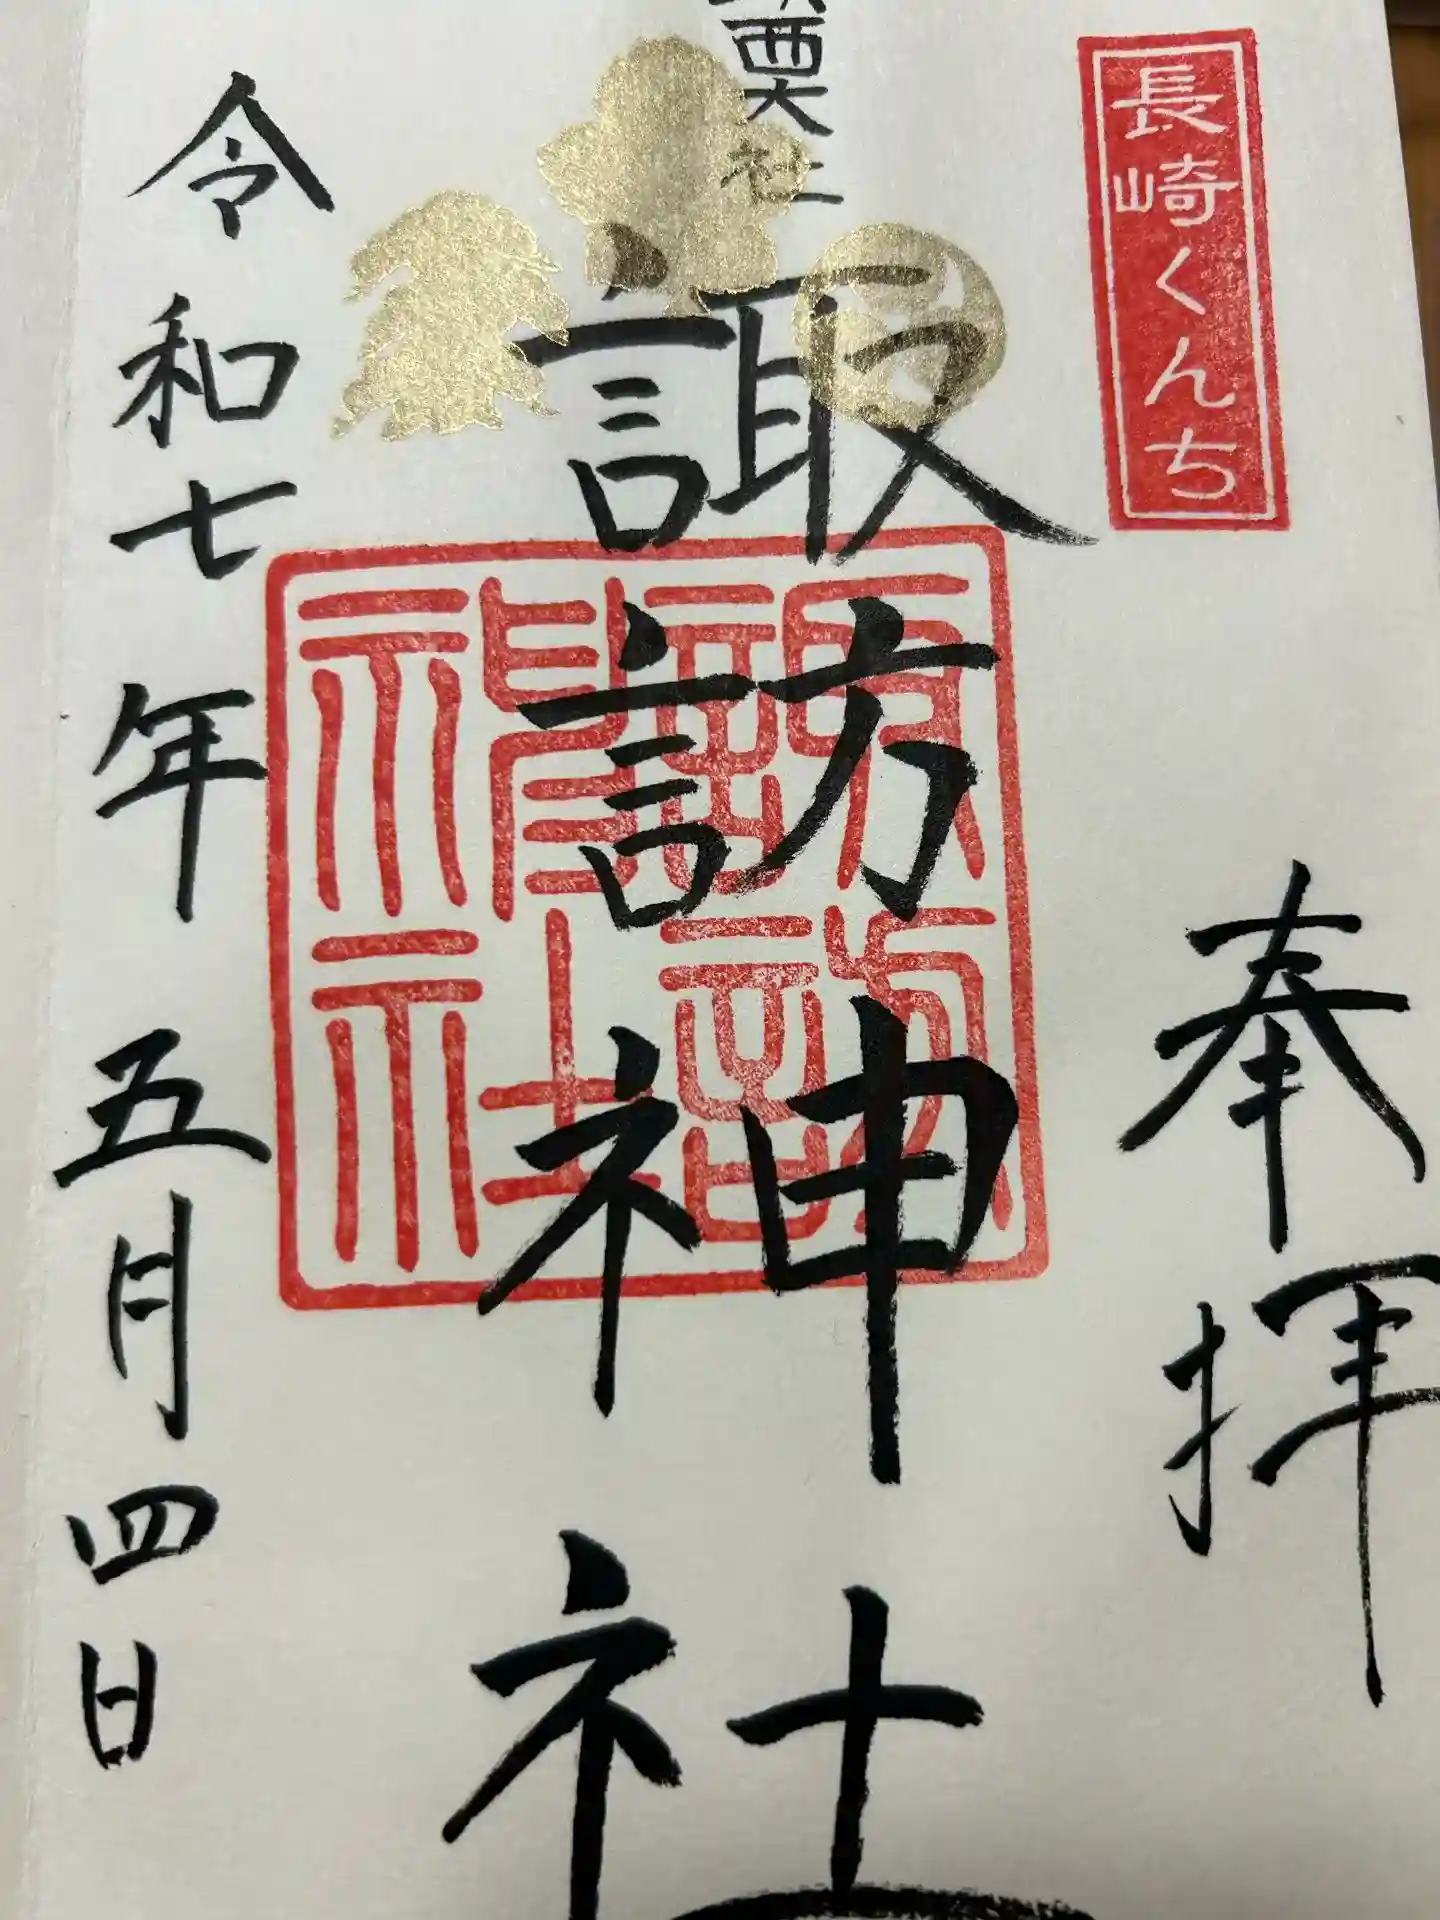 長崎くんち
奉拝
諏訪神社
諏訪神社
令和七年五月四日